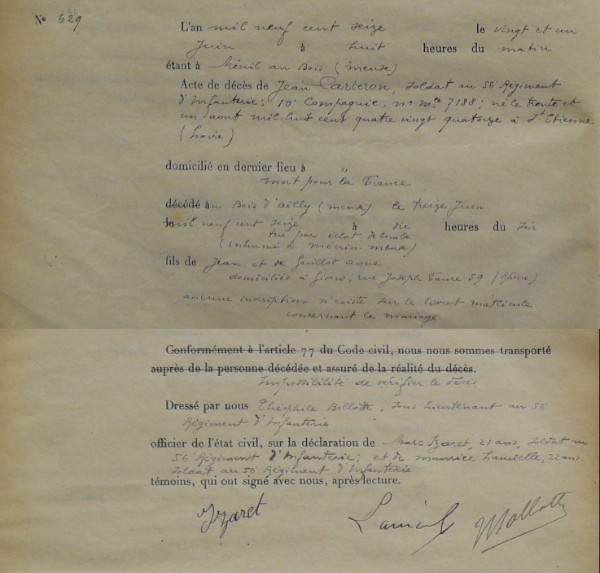 N° 629
L'an mil neuf cent seize le vingt et un
Juin à huit heures du matin
étant à Ménil au Bois (Meuse)
Acte de décès de Jean Carteron, soldat au 56 Régiment
d'Infanterie; 10e Compagnie; n° Mle 7188; né le trente et
un aout mil huit cent quatre vingt quatorze à St Etienne
(Loire)
domicilié en dernier lieu à "
mort pour la France
décédé au Bois d'ailly (meuse) le treize Juin
mil neuf cent seize à dix heures du soir
tué par éclat de bombe
(inhumé à mécrin-meuse)
fils de Jean et de Guillot Anne
domiciliés à Givors, rue Joseph Faure 59 (Rhône)
aucune inscription n'existe sur le livret matricule
concernant le mariage
Conformément à l'article 77 du Code civil, nous nous sommes transporté
auprès de la personne décédée et assuré de la réalité du décès.
Impossibilité de vérifier le décès
Dressé par nous Théophile Billotte, sous lieutenant au 56
Régiment d'Infanterie
officier de l'état civil, sur la déclaration de Marc Izaret, 21 ans, soldat au
56 Régiment d'Infanterie; et de maurice Lamielle, 22 ans
soldat au 56 Régiment d'Infanterie
témoins, qui ont signé avec nous, après lecture.
Izaret